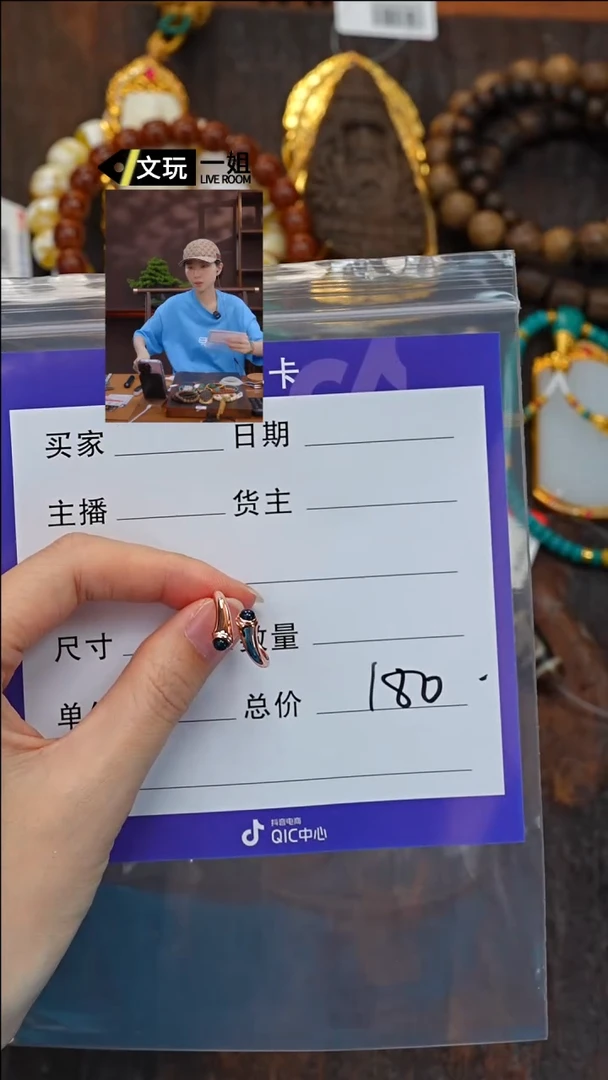 文玩 一姐
LIVE ROOM
卡
买家 日期
主播 货主
尺寸 数量
单 总价 180
抖音电商
QIC中心